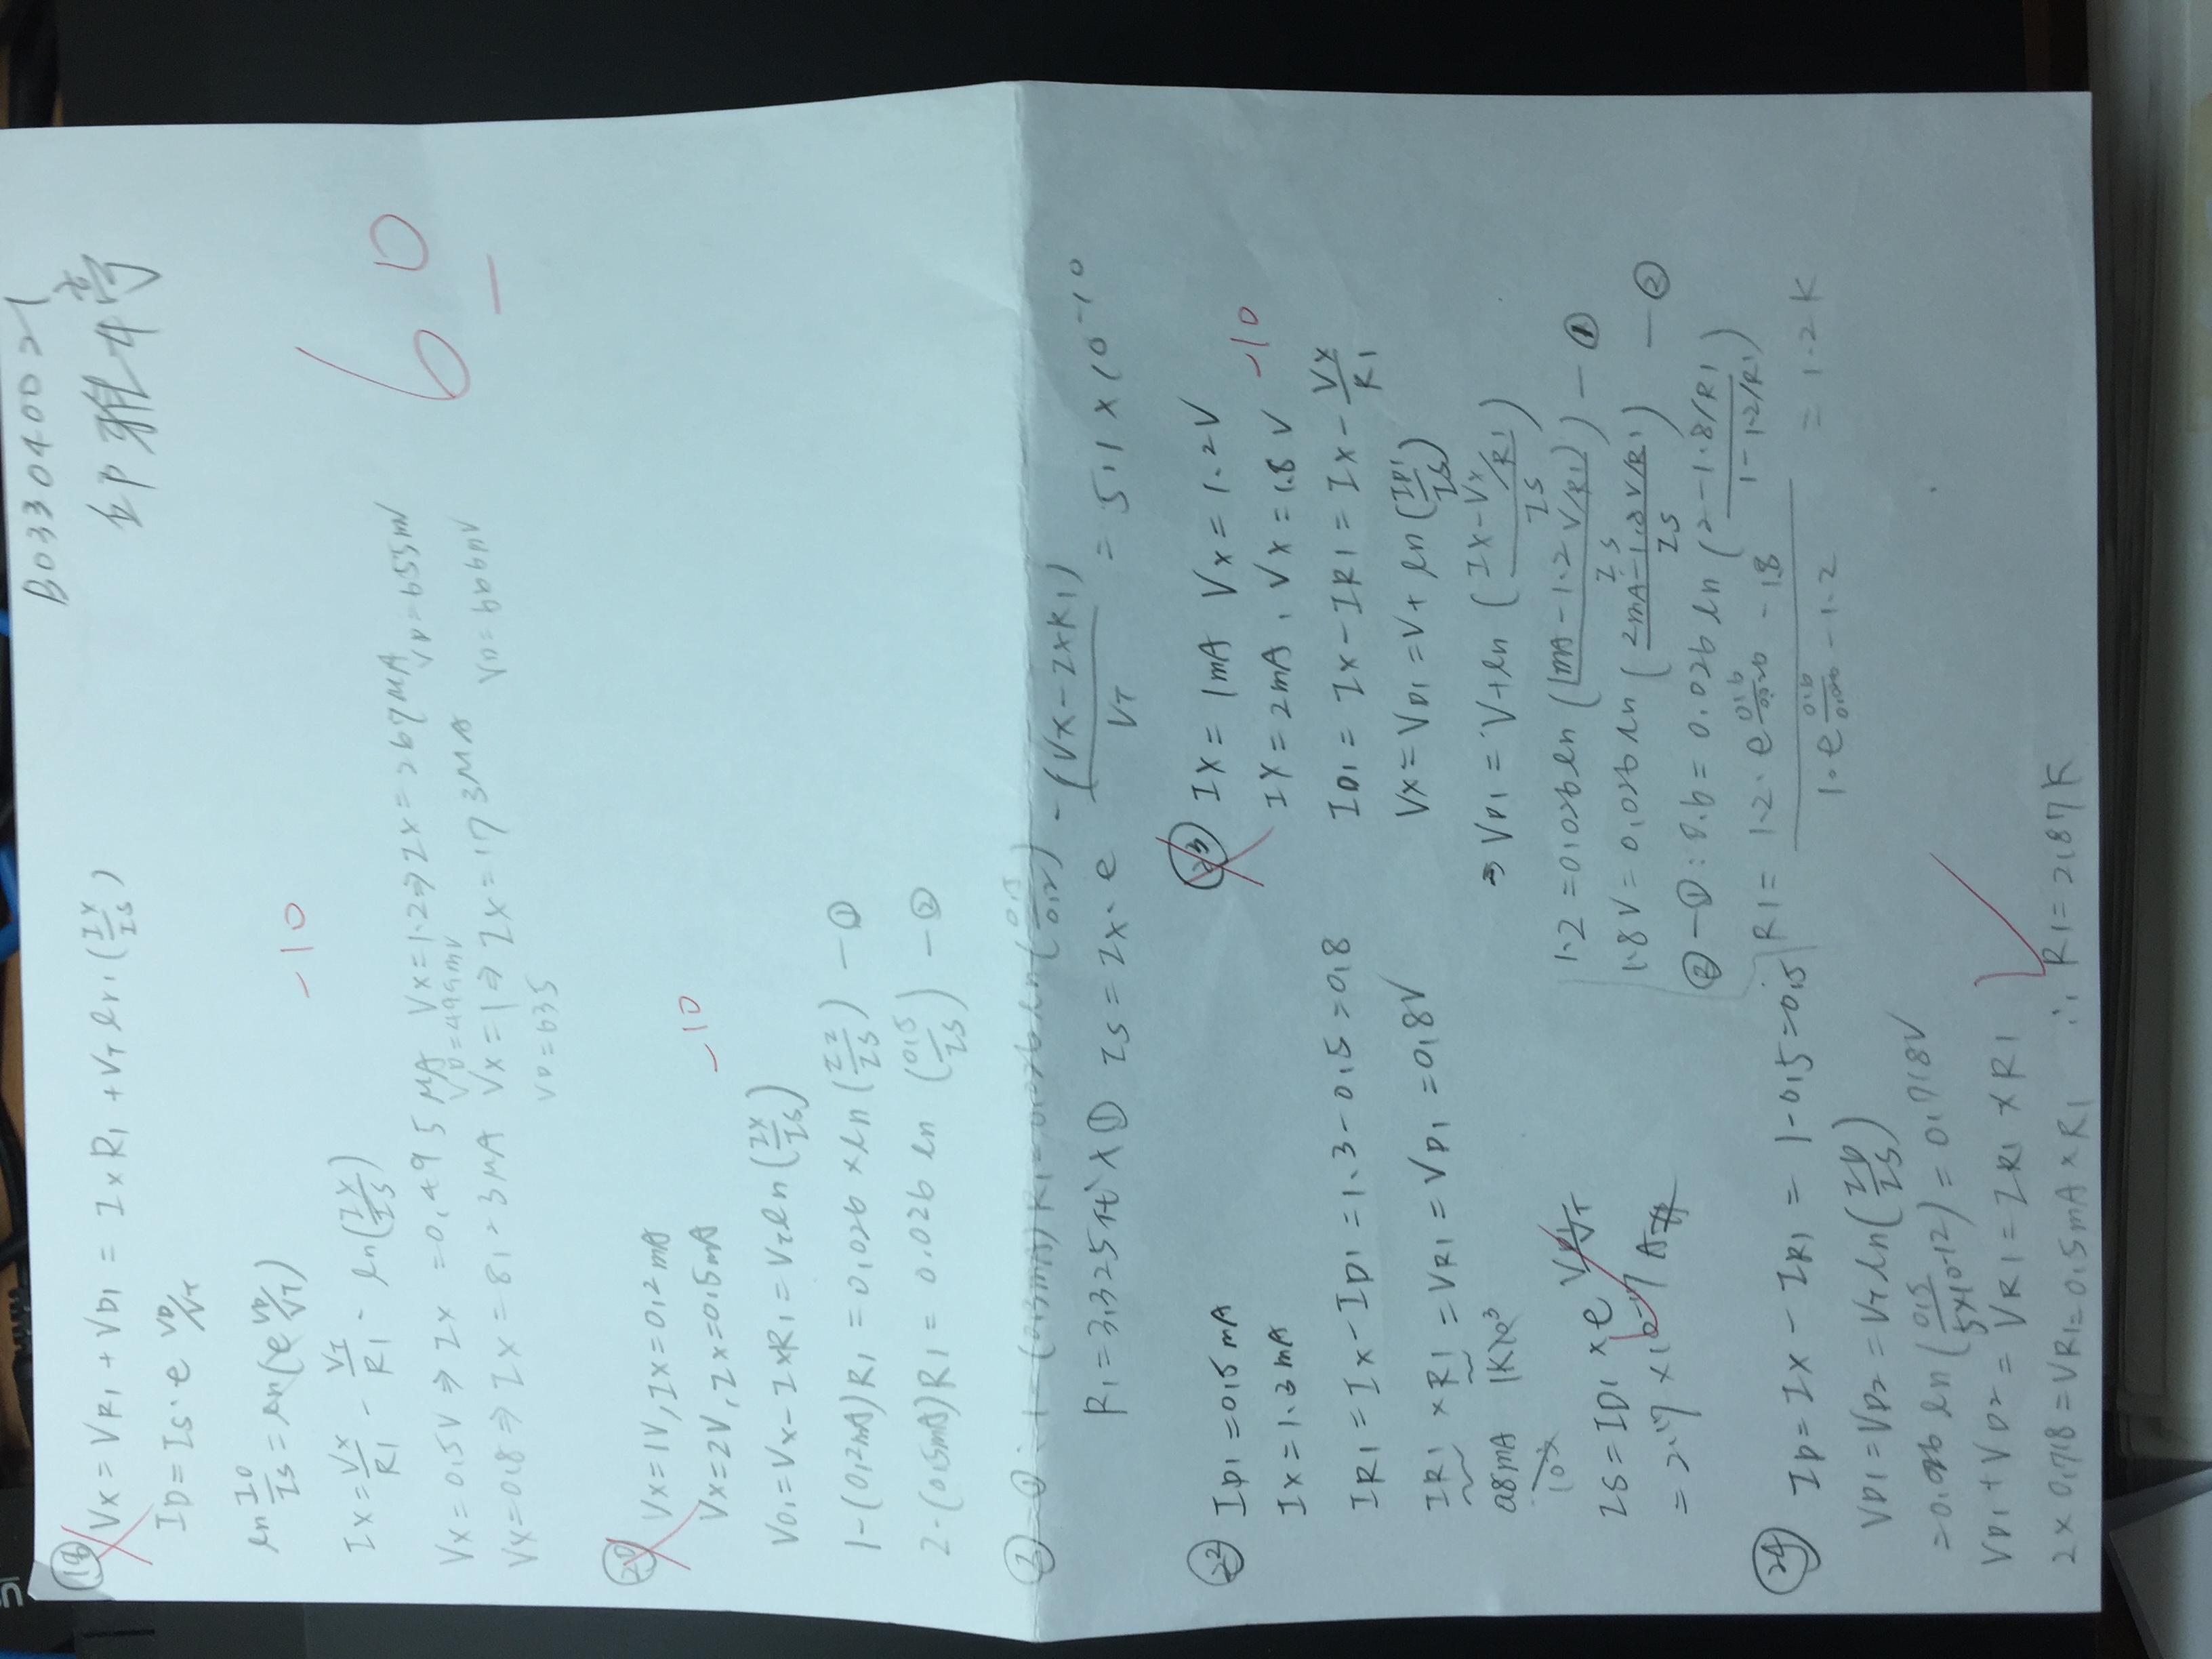 B033040021
邱雅婷
60
⑱ VX = VR1 + VD1 = IX R1 + VT ln (IX/IS)
ID = IS · e VD/VT
ln ID/IS = ln (e VD/VT)
-10
IX = VX/R1 - VT/R1 - ln (IX/IS)
VX = 0.5V ⇒ IX = 0.495 MA VX = 1.2 ⇒ IX = 267MA VD = 655mV
VD = 499mV
VX = 0.8 ⇒ IX = 81.23MA VX = 1 ⇒ IX = 173MA
VD = 635
⑳ VX = 1V, IX = 0.2mA
VX = 2V, IX = 0.5mA
-10
VD1 = VX - IXR1 = VT ln (IX/IS)
1 - (0.2mA) R1 = 0.026 × ln ( /IS) - ①
2 - (0.5mA) R1 = 0.026 ln (0.5/IS) - ②
② - ① : 1 - (0.3mA) R1 = 0.026 ln (0.5/0.2)
R1 = 3.325 代入① IS = IX · e -(VX - IXR1)/VT = 5.1 × 10-10
㉒ ID1 = 0.5mA
IX = 1.3mA
IR1 = IX - ID1 = 1.3 - 0.5 = 0.8
IR1 × R1 = VR1 = VD1 = 0.8V
0.8mA 1K
IS = ID1 × e VD/VT
= 2.17 × 10-17 A#
㉓ IX = 1mA VX = 1.2V
IX = 2mA, VX = 1.8V -10
ID1 = IX - IR1 = IX - VX/R1
VX = VD1 = Vt ln (ID1/IS)
⇒ VD1 = Vt ln (IX - VX/R1 / IS)
1.2 = 0.026 ln (1mA - 1.2V/R1 / IS) - ①
1.8V = 0.026 ln (2mA - 1.8V/R1 / IS) - ②
② - ① : 0.6 = 0.026 ln (2 - 1.8/R1 / 1 - 1.2/R1)
R1 = 1.2 · e 0.6/0.026 - 1.8 / 1 · e 0.6/0.026 - 1.2 = 1.2K
㉔ ID = IX - IR1 = 1 - 0.5 = 0.5
VD1 = VD2 = VT ln (ID/IS)
= 0.026 ln (0.5/5×10-12) = 0.718V
VD1 + VD2 = VR1 = IR1 × R1
2 × 0.718 = VR1 = 0.5mA × R1 ∴ R1 = 2.87K